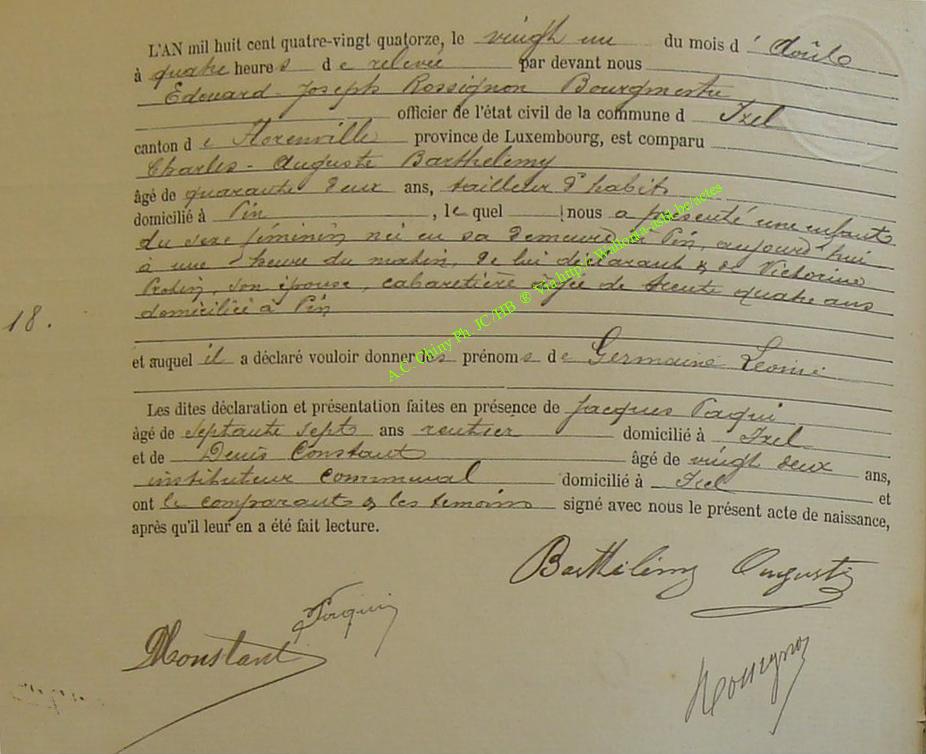 L'AN mil huit cent quatre-vingt quatorze, le vingh un du mois d' Août
à quatre heures de relevée par devant nous
Edouard-Joseph Rossignon Bourgmestre
officier de l'état civil de la commune d Ixel
canton de Florenville province de Luxembourg, est comparu
Charles-Auguste Barthélemy
âgé de quarante deux ans, tailleur d'habits
domicilié à Pin, lequel nous a présenté une enfant
du sexe féminin née en sa demeure à Pin, aujourd'hui
à une heure du matin, de lui déclarant & de Victorine
son épouse, cabaretière âgée de trente quatre ans
domiciliée à Pin
18.
et auquel il a déclaré vouloir donner les prénoms de Germaine Leonie
Les dites déclaration et présentation faites en présence de Jacques Paqui
âgé de septante sept ans rentier domicilié à Ixel
et de Denis Constant âgé de vingh deux ans,
instituteur communal domicilié à Ixel et
ont le comparant & les témoins signé avec nous le présent acte de naissance,
après qu'il leur en a été fait lecture.
Barthélémy Auguste
Paquin
DConstant
Rossignon
A.C. Chiny Ph JC/HB ® Via http://Wallonia-asbl.be/actes